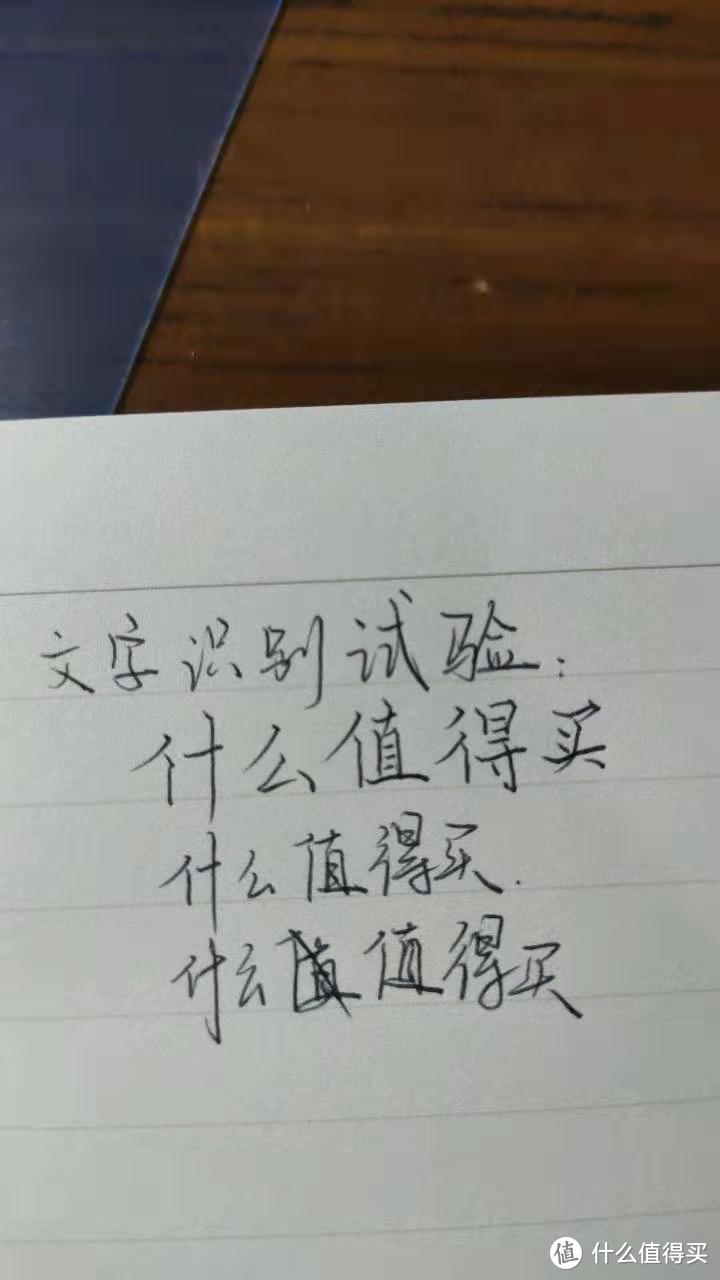 文字识别试验:
什么值得买
什么值得买.
什么值得买
值 什么值得买